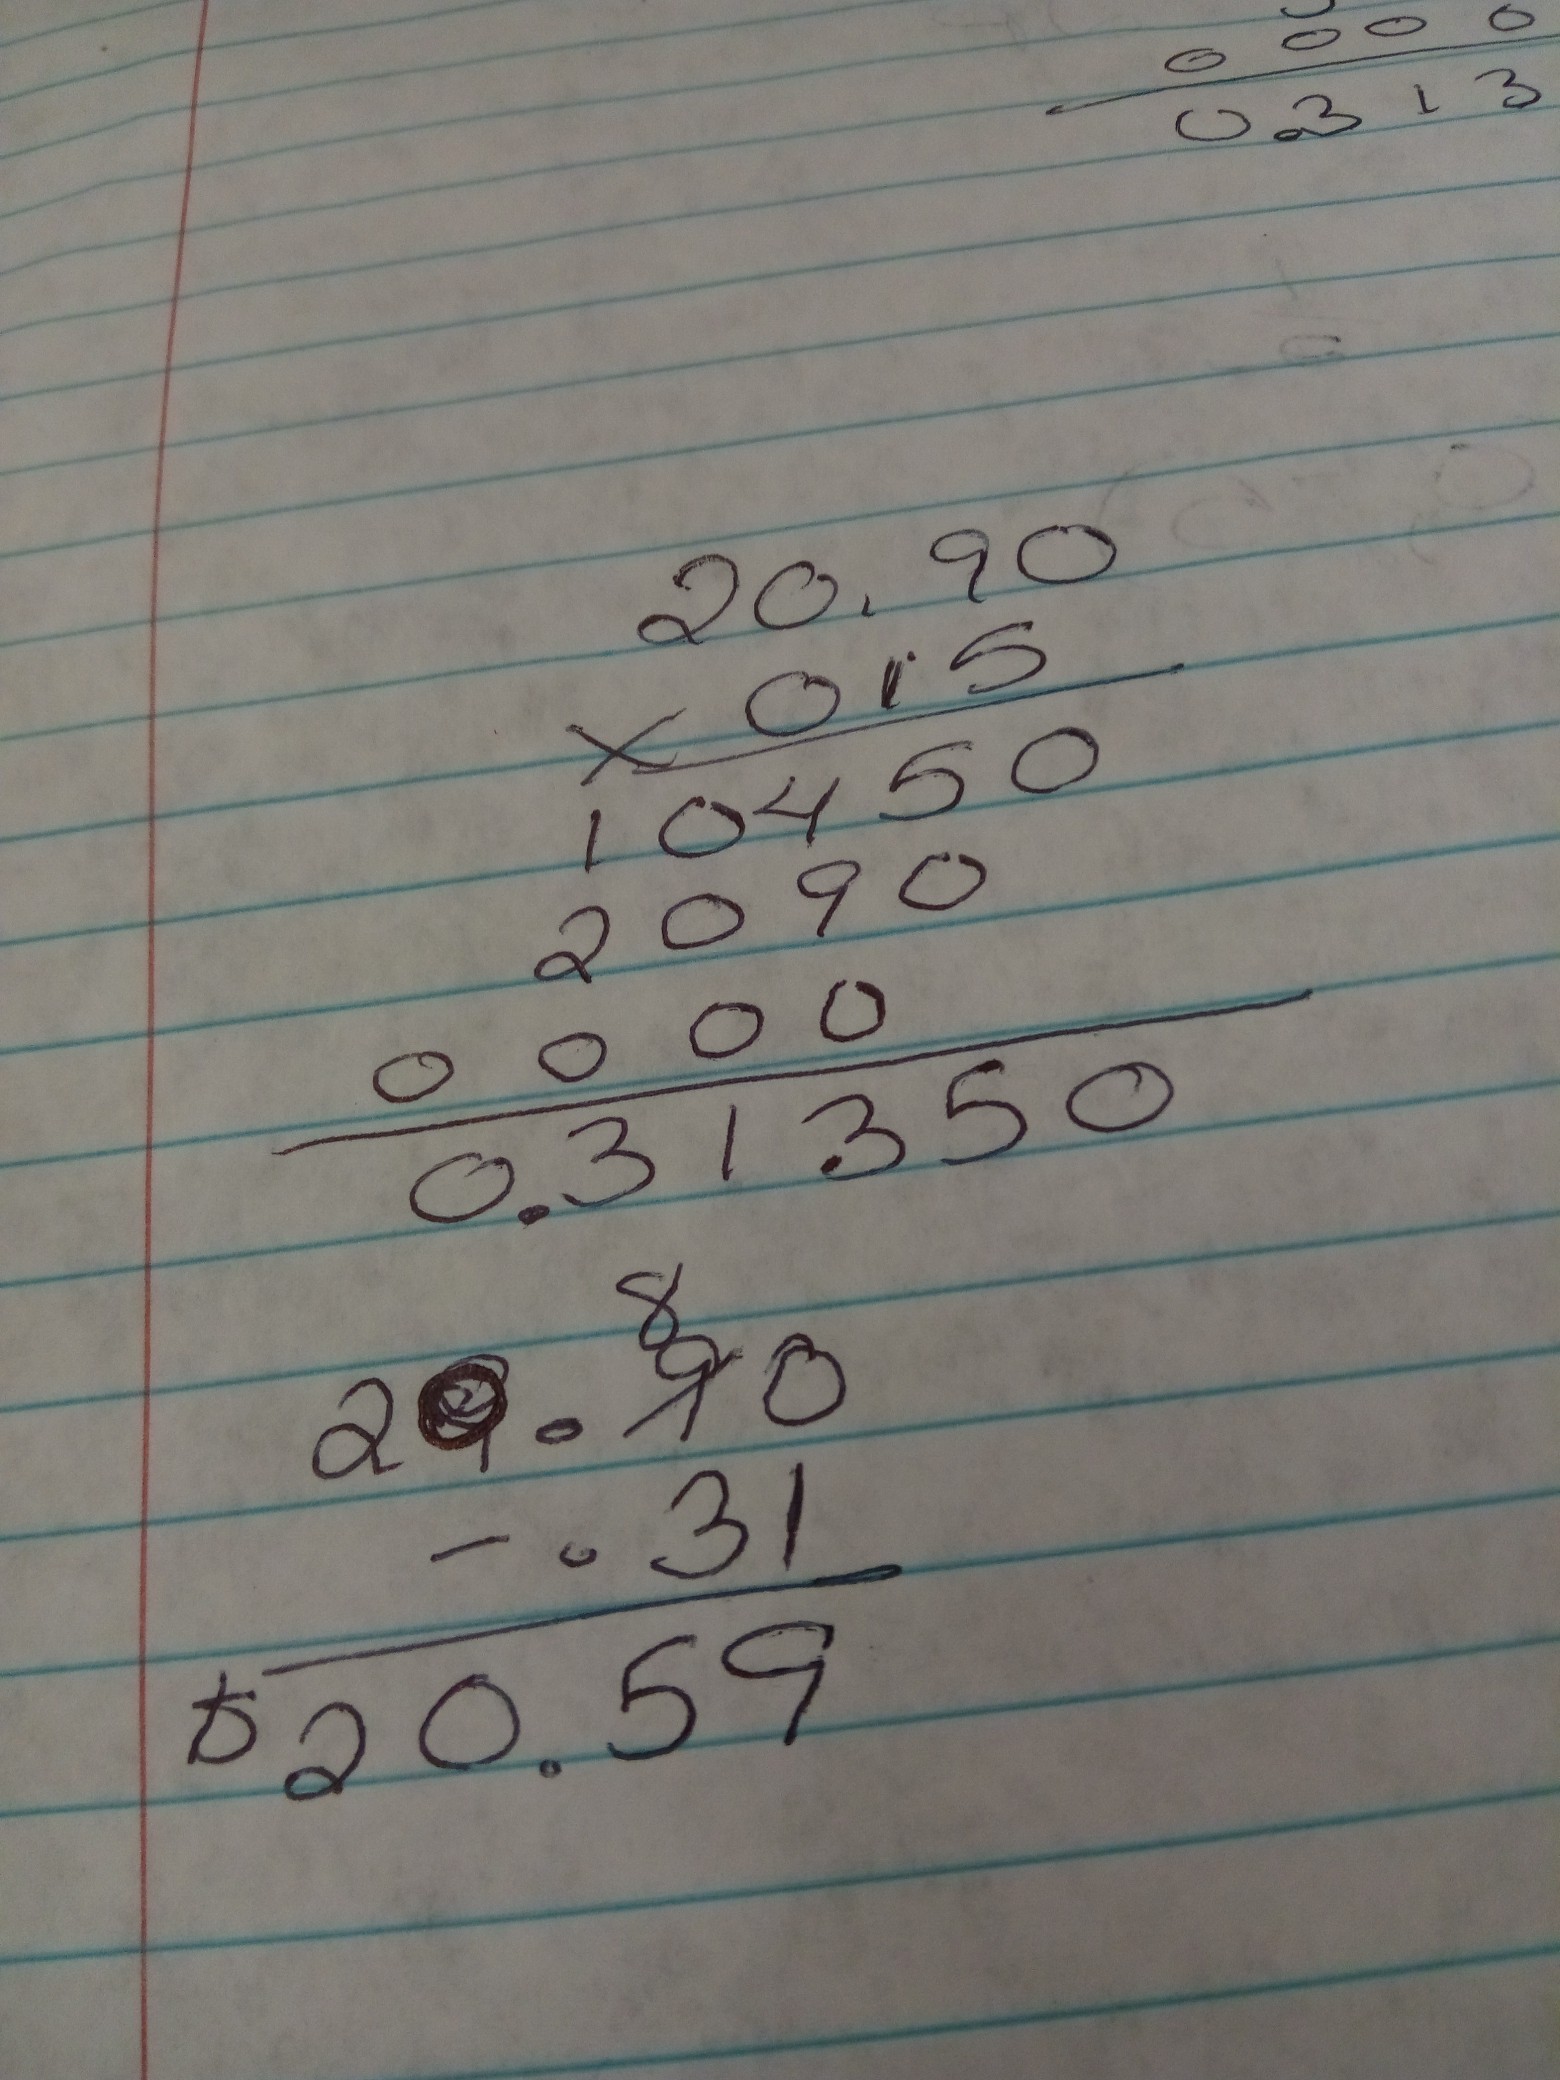 0 0 0 0
0.313
20.90
× 015
10450
2090
0000
0.31350
8
20.90
- .31
20.59